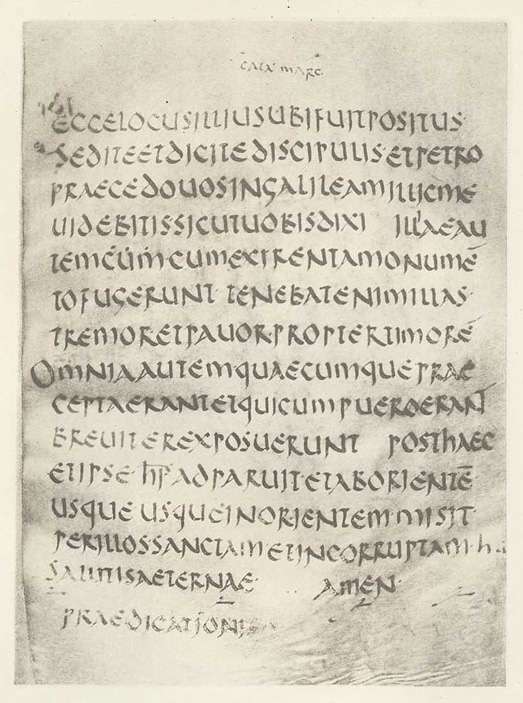 CATA MARC
ECCELOCUSILLIUSUBIFUITPOSITUS
SEDITEETDICITEDISCIPULIS·ETPETRO
PRAECEDOUOSINGALILEAMILLICME
UIDEBITISSICUTUOBISDIXI ILLAEAU
TEMCUMCUMEXIRENTAMONUMĒ
TOFUGERUNT TENEBATENIMILLAS·
TREMORETPAUORPROPTERTIMORĒ
OMNIAAUTEMQUAECUMQUEPRAE
CEPTAERANTETQUICUMPUEROERANT
BREUITEREXPOSUERUNT POSTHAEC
ETIPSE HP̄ ADPARUITETABORIENTĒ
USQUE USQUEINORIENTEMMISIT
PERILLOSSANCTAMETINCORRUPTAM·H
SALUTISAETERNAE· AMEN·
PRAEDICATIONIS